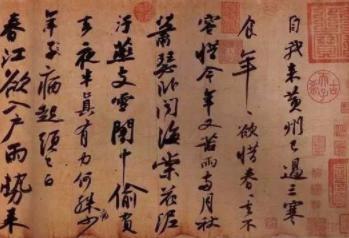 自我來黃州已過三寒
食年〻欲惜春〻去不
容惜今年又苦雨兩月秋
蕭瑟臥聞海棠花泥
汙燕支雪闇中偷負
去夜半真有力何殊病少
年子病起頭已白
春江欲入戶雨勢來